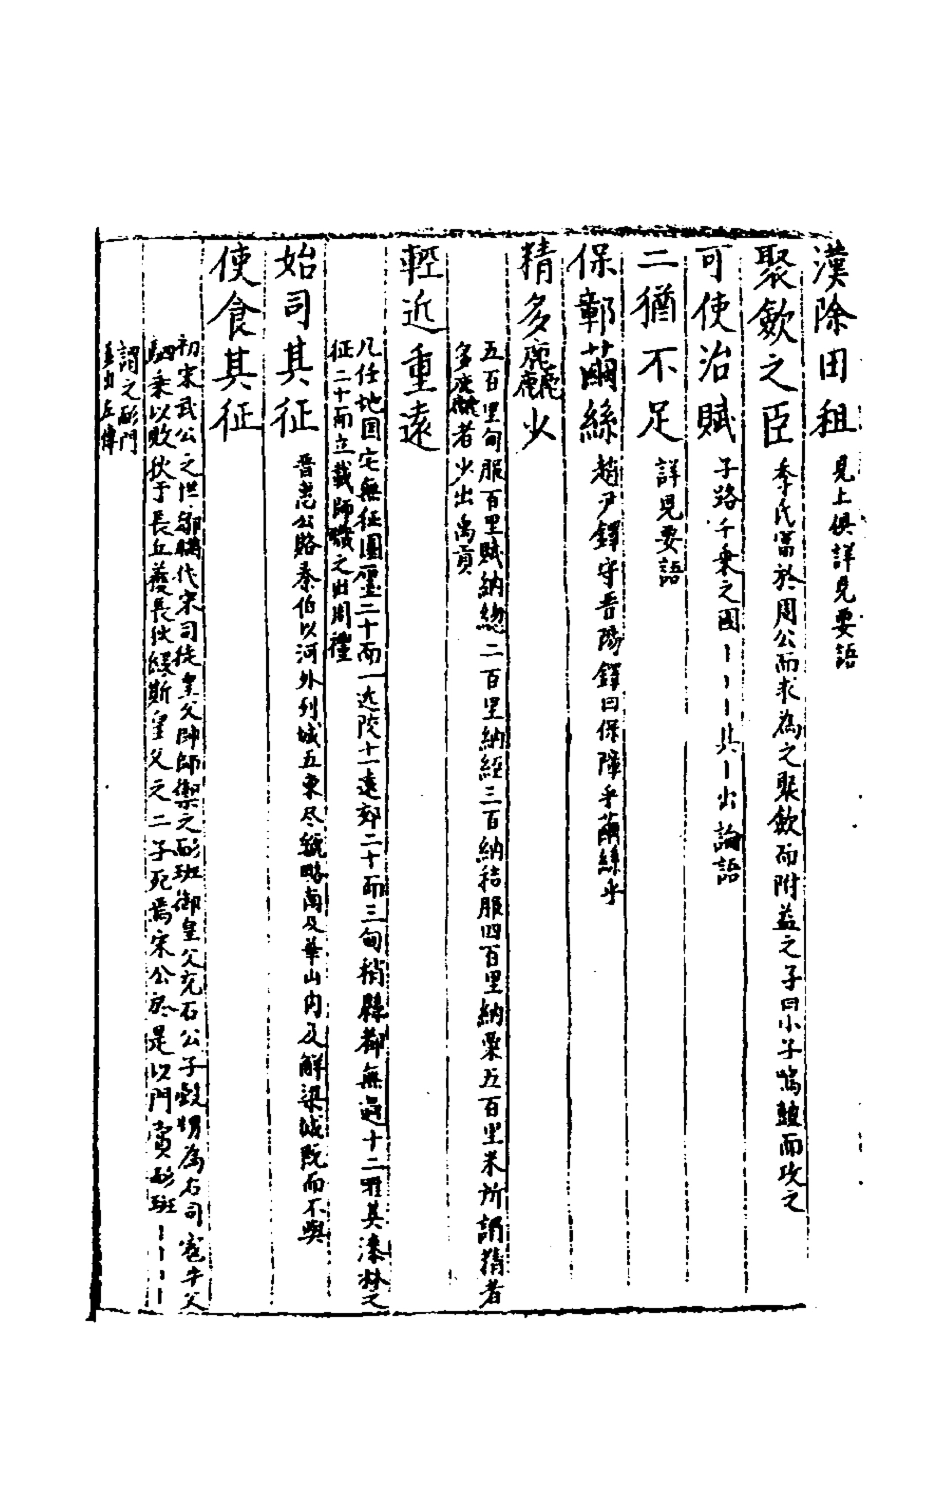 漢除田租 見上俱詳見要語
聚歛之臣 季氏富於周公而求為之聚歛而附益之子曰小子鳴皷而攻之
可使治賦 子路千乘之國丨丨丨其丨出論語
二猶不足 詳見要語
保鄣繭絲 趙尹鐸守晋陽鐸曰保障乎繭絲乎
精多麤少
五百里甸服百里賦納緫二百里納絰三百納秸服四百里納粟五百里米所謂精者
多麤者少出禹貢
輕近重遠
凡任地国宅無征園廛二十而一近郊十一遠郊二十而三甸稍縣都無過十二唯其漆林之
征二十而五載師職之出周禮
始司其征 晋惠公賂秦伯以河外列城五東尽虢略南及華山内及解梁城既而不與
使食其征
初宋武公之世鄋瞞伐宋司徒皇父帥師禦之耏班御皇父充石公子穀甥為右司寇牛父
駟乘以敗狄于長丘獲長狄緩斯皇父之二子死焉宋公於是以門賞耏班丨丨丨丨
謂之耏門
出左傳